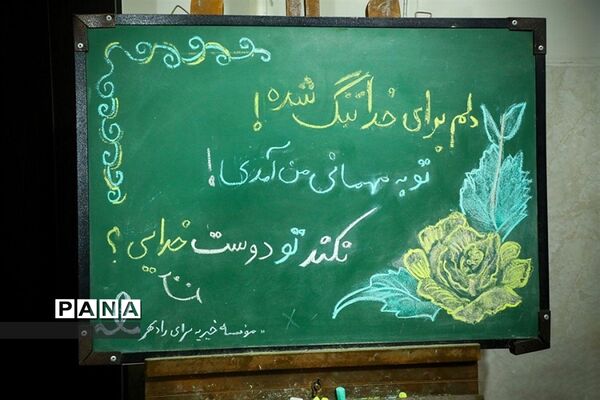 دلم برای خدا تنگ شده!
تو به مهمانی من آمدی!
نکند تو دوست خدایی؟
موسسه خیریه سرای رادمهر
PANA